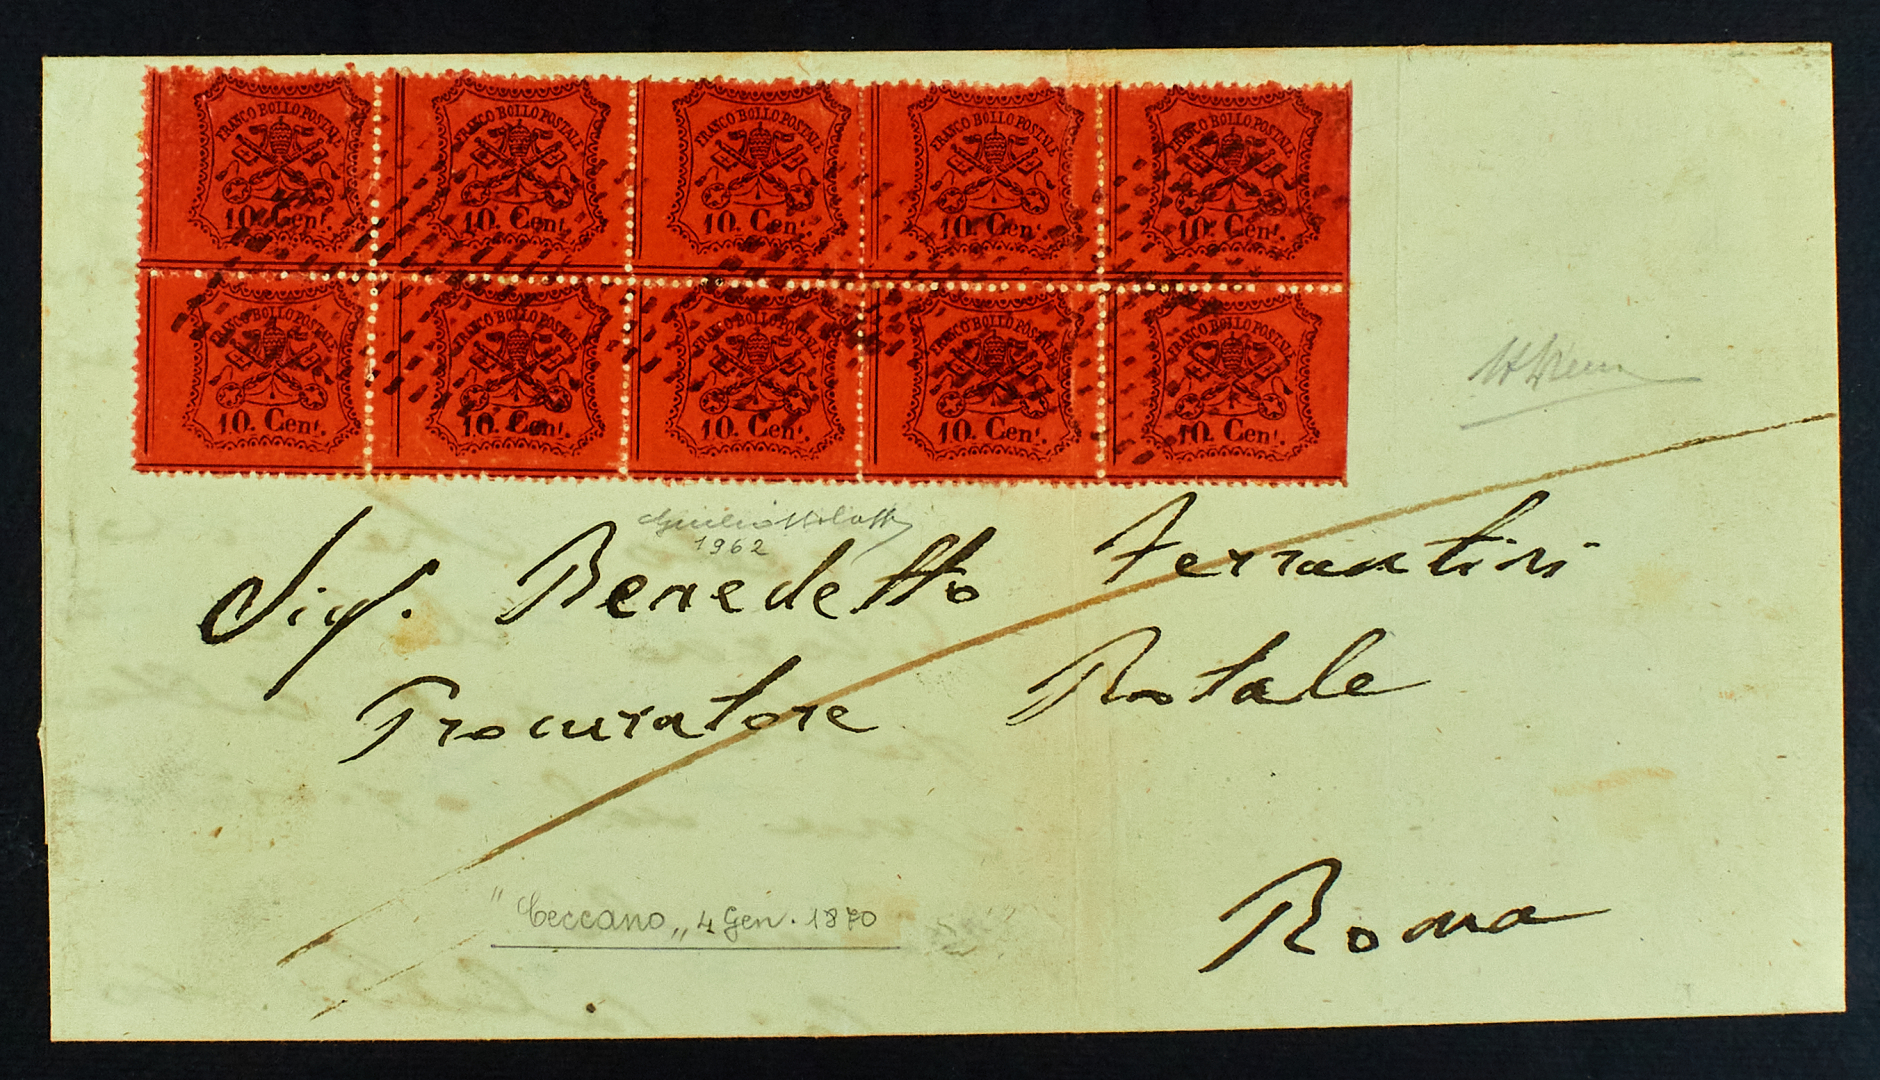 FRANCO BOLLO POSTALE FRANCO BOLLO POSTALE FRANCO BOLLO POSTALE FRANCO BOLLO POSTALE FRANCO BOLLO POSTALE
10. Cent. 10. Cent. 10. Cent. 10. Cent. 10. Cent.
FRANCO BOLLO POSTALE FRANCO BOLLO POSTALE FRANCO BOLLO POSTALE FRANCO BOLLO POSTALE FRANCO BOLLO POSTALE
10. Cent. 10. Cent. 10. Cent. 10. Cent. 10. Cent.
1962
Sig. Benedetto Ferrantini
Procuratore Rotale
Roma
"Ceccano„ 4 Gen. 1870